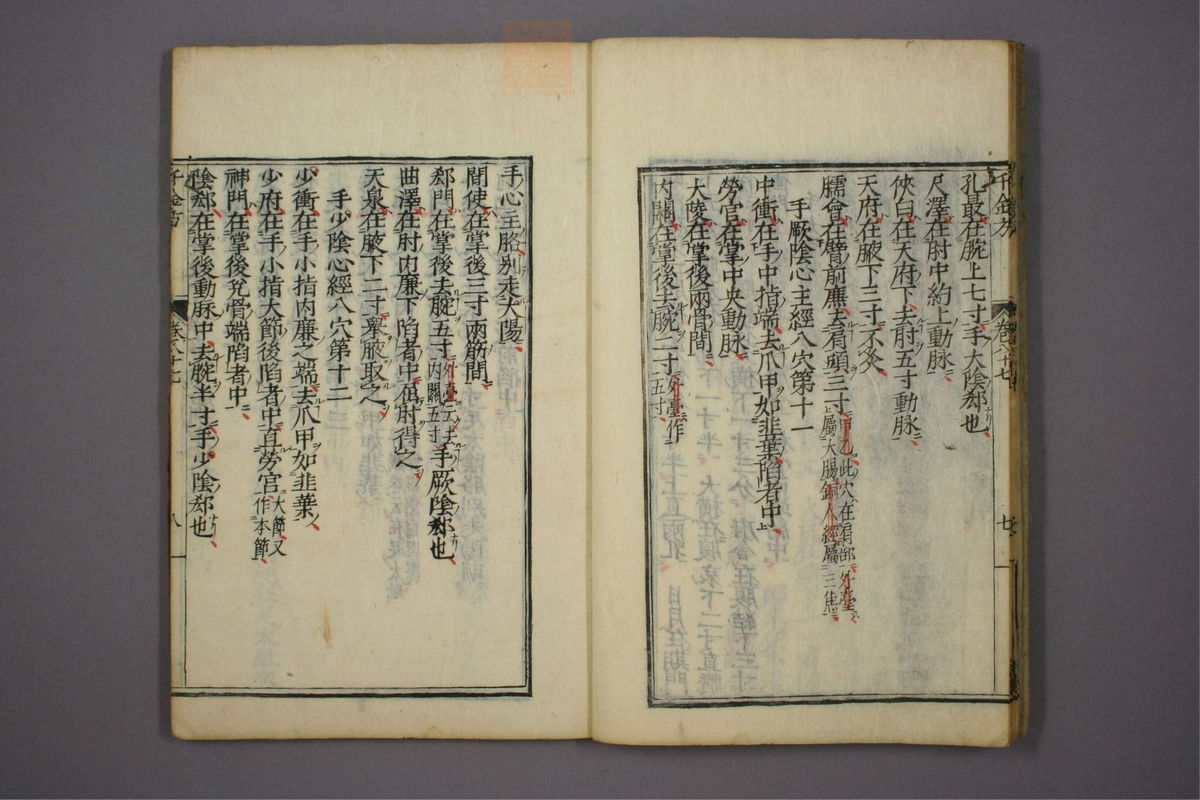 孔最在腕上七寸手太陰郄也
尺澤在肘中約上動脉
俠白在天府下去肘五寸動脉
天府在腋下三寸不灸
臑會在臂前廉去肩頭三寸甲乙此穴在肩部外臺屬大腸銅人經屬三焦
手厥陰心主經八穴第十一
中衝在手中指端去爪甲如韭葉陷者中
勞宮在掌中央動脉
大陵在掌後兩骨間
内關在掌後去腕二寸外臺作五寸
手心主胳別走太陽
間使在掌後三寸兩筋間
郄門在掌後去腕五寸外臺云去内關五寸手厥陰郄也
曲澤在肘内廉下陷者中屈肘得之
天泉在腋下二寸舉腋取之
手少陰心經八穴第十二
少衝在手小指内廉之端去爪甲如韭葉
少府在手小指大節後陷者中直勞宮大節又作本節
神門在掌後兌骨端陷者中
陰郄在掌後動脉中去腕半寸手少陰郄也
千金方
八